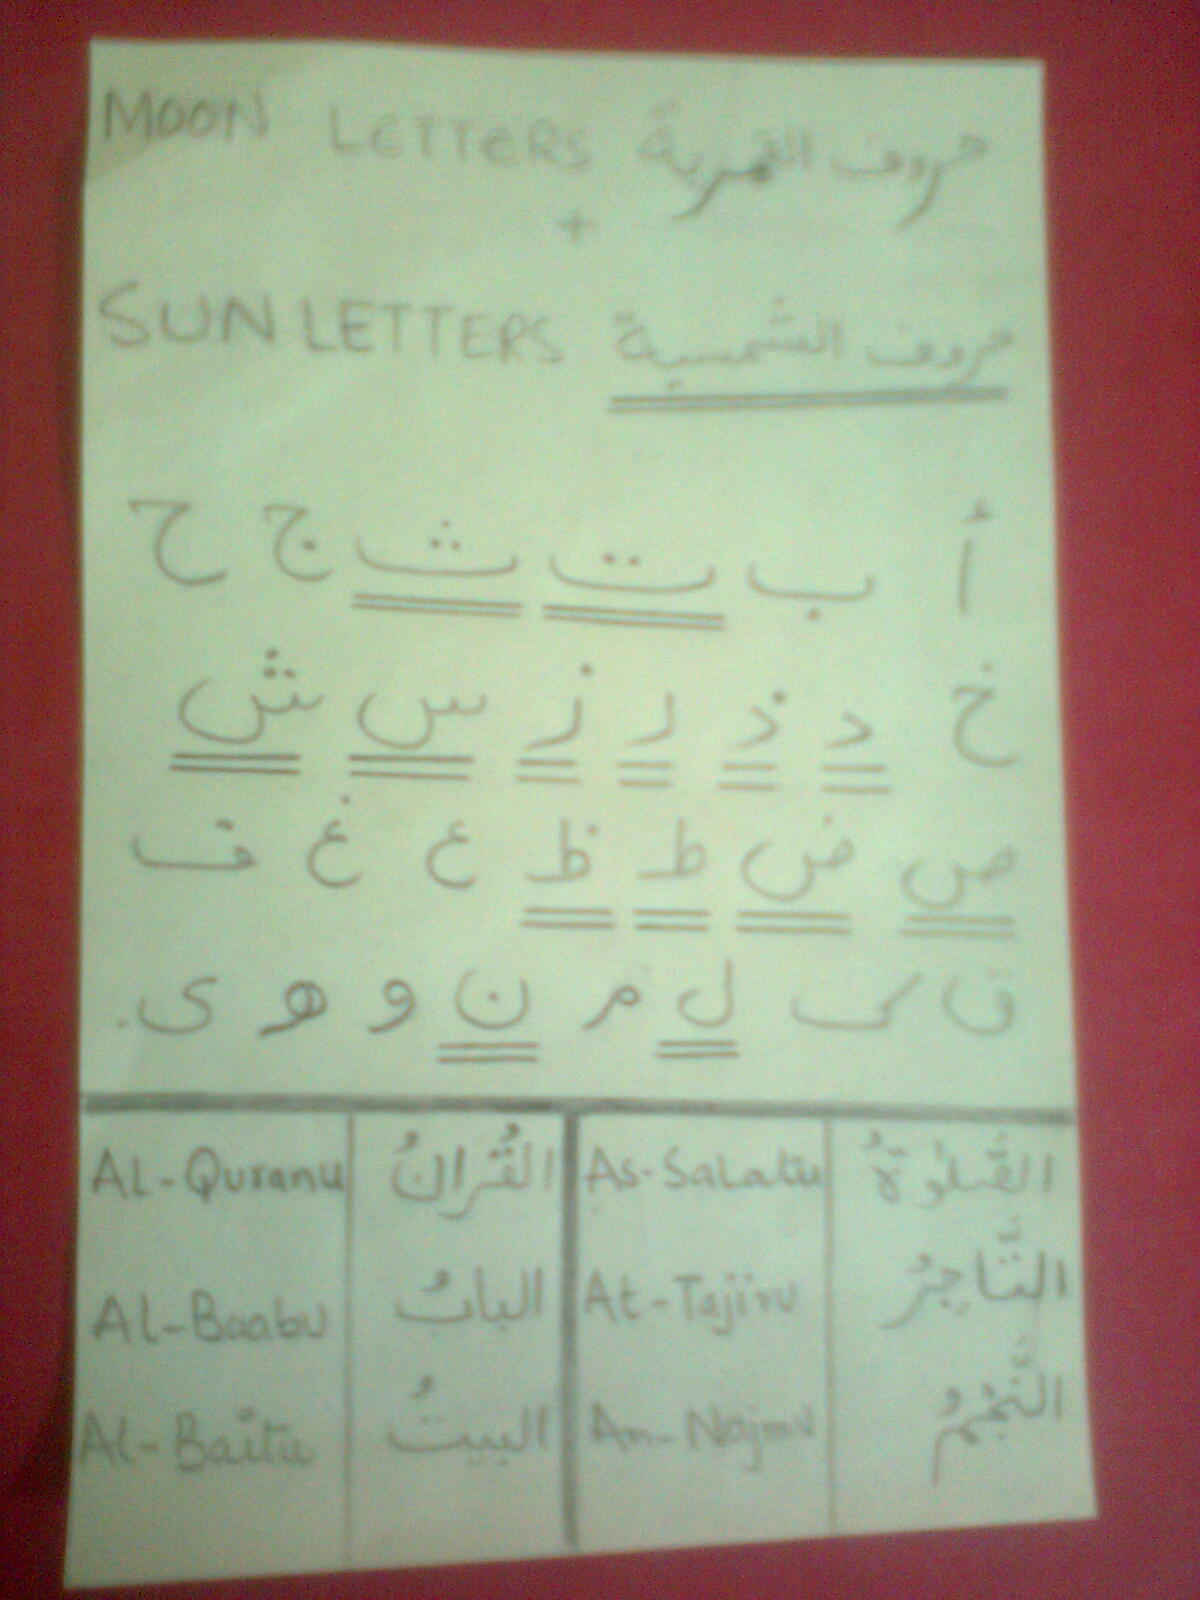 MOON LETTERS حروف القمرية
+
SUN LETTERS حروف الشمسية
أ ب ت ث ج ح
خ د ذ ر ز س ش
ص ض ط ظ ع غ ف
ق ک ل م ن و هو ى.
AL-Quranu القُرانُ As-Salatu الصَّلوٰةُ
AL-Baabu البابُ At-Tajiru التَّاجِرُ
Al-Baitu البيتُ An-Najmu النَّجْمُ